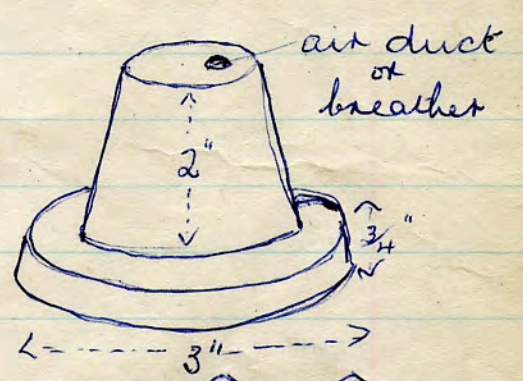 air duct
or
breather
2"
3/4"
3"